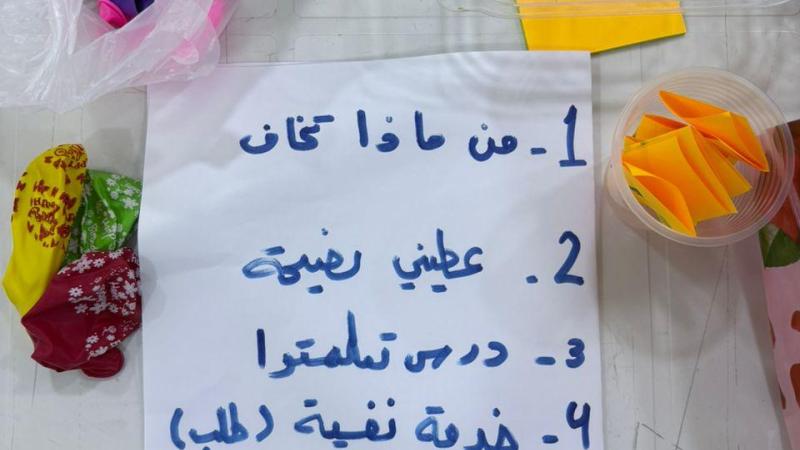 1- من ماذا تخاف
2. عطيني نصيحة
3- درس تعلمتوا
4- خدمة نفسية (طلب)